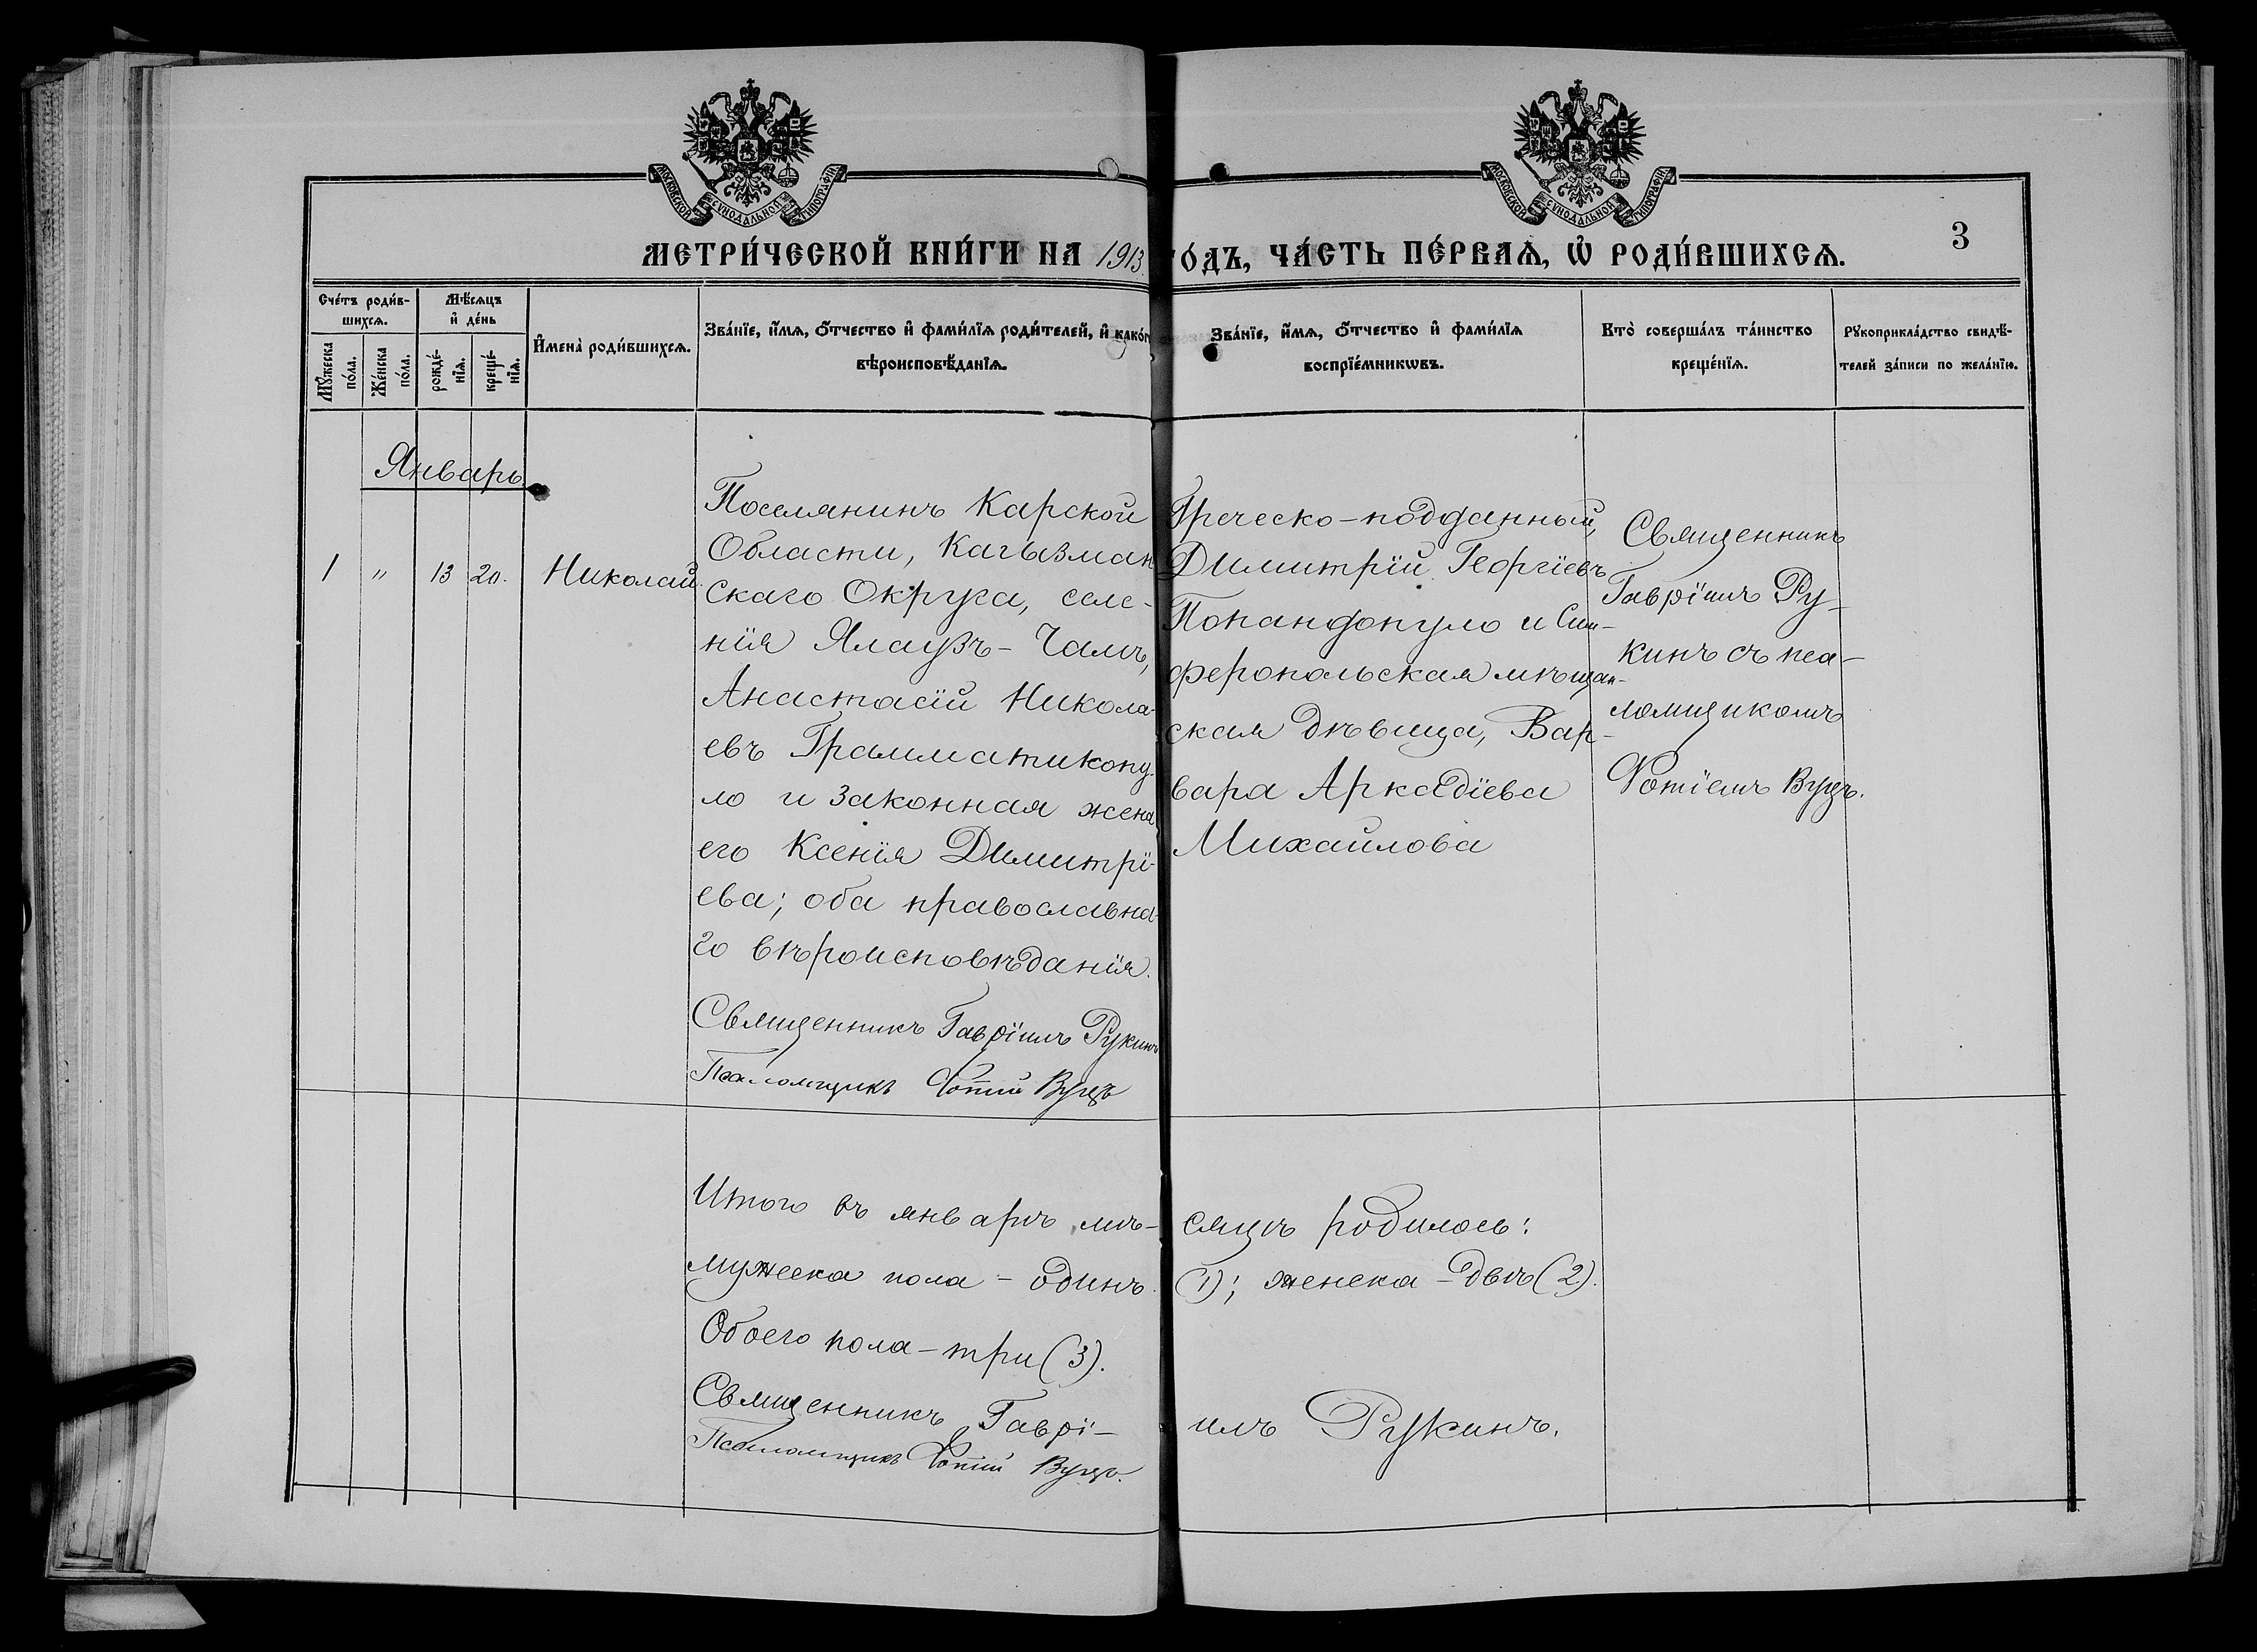 МОСКОВСКОЙ СѴНОДАЛЬНОЙ ТИПОГРАФІИ
МОСКОВСКОЙ СѴНОДАЛЬНОЙ ТИПОГРАФІИ
3
МЕТРИ́ЧЕСКОЙ КНИ́ГИ НА 1913 ГО́ДЪ, ЧА́СТЬ ПЕ́РВАѦ, Ѡ҆ РОДИ́ВШИХСѦ.
Сче́тъ роди́в-
шихсѧ.
Мꙋ́жеска
по́ла.
Же́нска
по́ла.
Мѣ́сѧцъ
и҆ де́нь
рожде́-
нїѧ.
креще́-
нїѧ.
И҆мена̀ роди́вшихсѧ.
Зва́нїе, и҆́мѧ, ѻ҆́тчество и҆ фами́лїѧ роди́телей, и҆ како́г
вѣроисповѣ́данїѧ.
Зва́нїе, и҆́мѧ, ѻ҆́тчество и҆ фами́лїѧ
воспрїе́мникѡвъ.
Кто̀ соверша́лъ та́инство
креще́нїѧ.
Рꙋкоприкла́дство свидѣ́-
телей за́писи по жела́нїю.
Январь.
1 " 13 20. Николай.
Поселянинъ Карской
Области, Кагызман
скаго Округа, селе-
нія Ялаузъ-Чамъ,
Анастасій Никола-
евъ Грамматикопу-
ло и законная жена
его Ксенія Димитрі-
ева; оба православна-
го вѣроисповѣданія.
Священникъ Гавріилъ Рукинъ
Псаломщикъ Фотій Вуцъ
Греческо-подданный,
Димитрій Георгіевъ
Попандопуло и Сим-
феропольская мѣщан-
ская дѣвица, Вар-
вара Аркадіева
Михайлова
Священникъ
Гавріилъ Ру-
кинъ съ пса-
ломщикомъ
Фотіемъ Вуцъ.
Итого въ январѣ мѣ- сяцѣ родилось:
мужеска пола - одинъ (1); женска - двѣ (2).
Обоего пола - три (3).
Священникъ Гаврі- илъ Рукинъ.
Псаломщикъ Фотій Вуцъ.